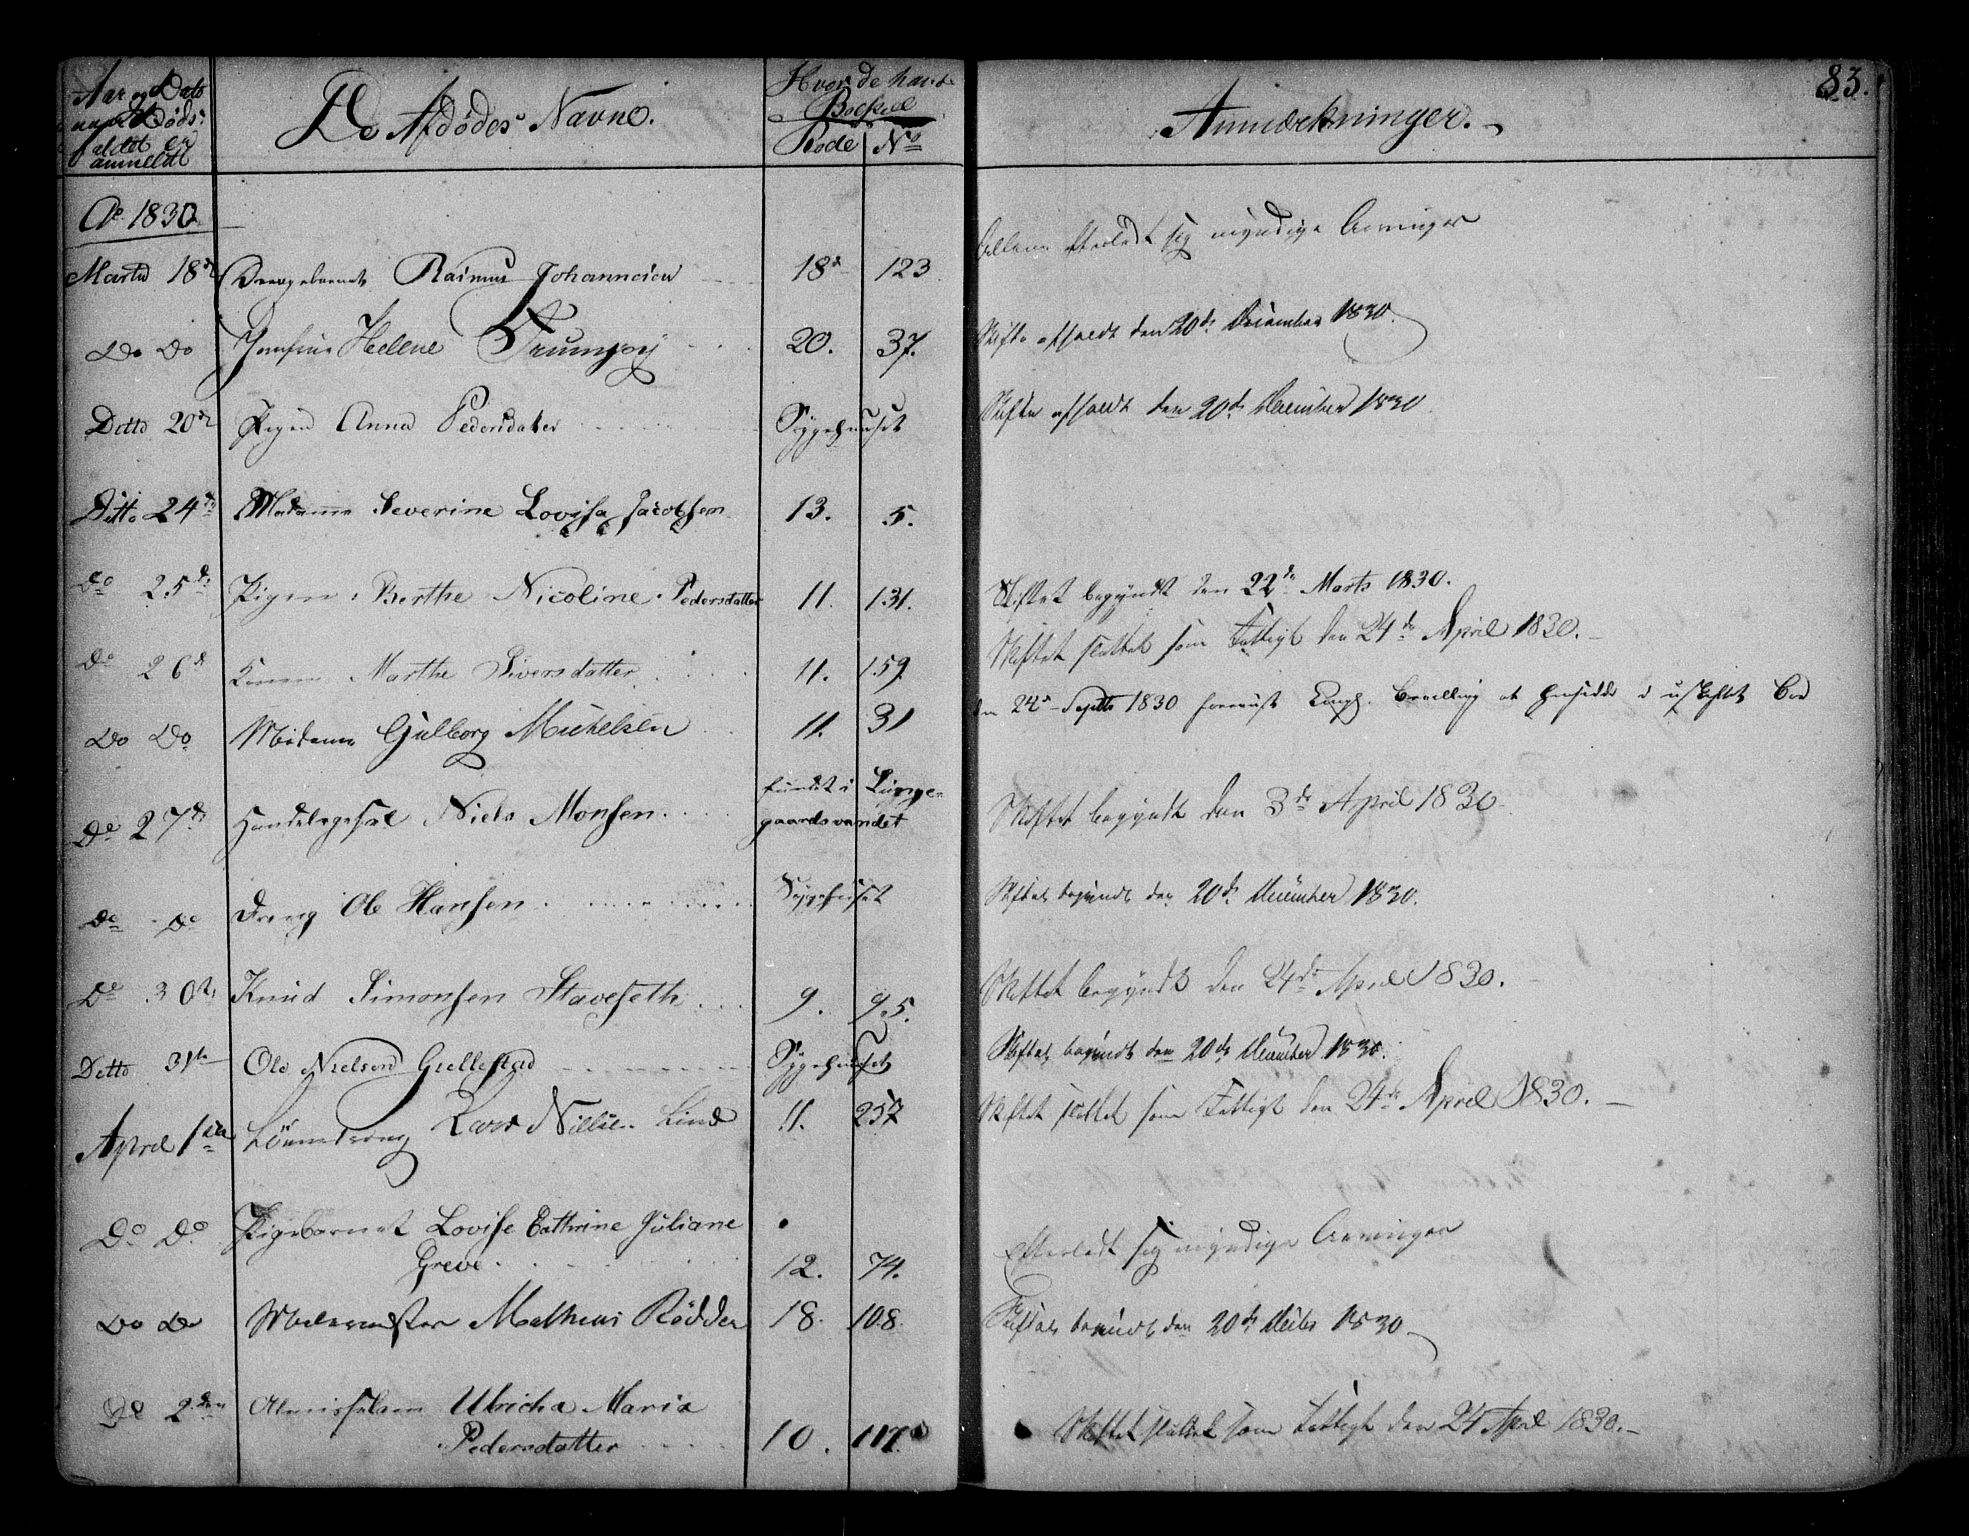 83.
Aar og Dato
naar Døds-
faldet er
anmeldt
De Afdødes Navne.
Hvor de havde
Boepæl
Rode No
Anmærkninger.
Ao 1830
Marts 18de Drengebarnet Rasmus Johannesen 18de 123 efterladt sig myndige Arvinger
Do Do Jomfrue Helene Trumpy 20. 37. Skifte afholdt den 20de December 1830.
Detto 20de Pigen Anna Pedersdatter Sygehuuset Skifte afholdt den 20de December 1830
Ditto 24de Madame Severine Lovisa Jacobsen 13. 5.
Do 25de Pigen Berthe Nicoline Pedersdatter 11. 131. Skiftet begyndt den 22de Marts 1830.
Do 26de Konen Marthe Siversdatter 11. 159. Skiftet sluttet som Fattigt den 24de April 1830.
Do Do Madame Gulborg Michelsen 11. 31 den 24de Septbr 1830 foreviist Kongl. Bevilling at hensidde i uskiftet Boe
Do 27de Handelsgesel Niels Monsen fundet i Lunge-
gaardsvandet Skiftet begyndt den 3de April 1830
Do Do Dreng Ole Hansen Sygehuset Skiftet begyndt den 20de December 1830.
Do 30te Knud Simonsen Stavseth 9. 95. Skiftet begyndt den 24de April 1830.
Detto 31te Ole Nielsen Gullestad Sygehuset Skiftet begyndt den 20de December 1830.
April 1ste Lönnedreng Lars Nilsen Lind 11. 257 Skiftet sluttet som Fattigt den 24de April 1830.
Do Do Pigebarnet Lovise Cathrine Juliane
Greve 12. 74. Efterladt sig myndige Arvinger
Do Do Mathias Rödder 18. 108. Skiftet begyndt den 20de Decbr 1830
Do 2den Almisselem Ulricha Maria
Pedersdatter 10. 117. Skiftet sluttet som Fattigt den 24 April 1830.